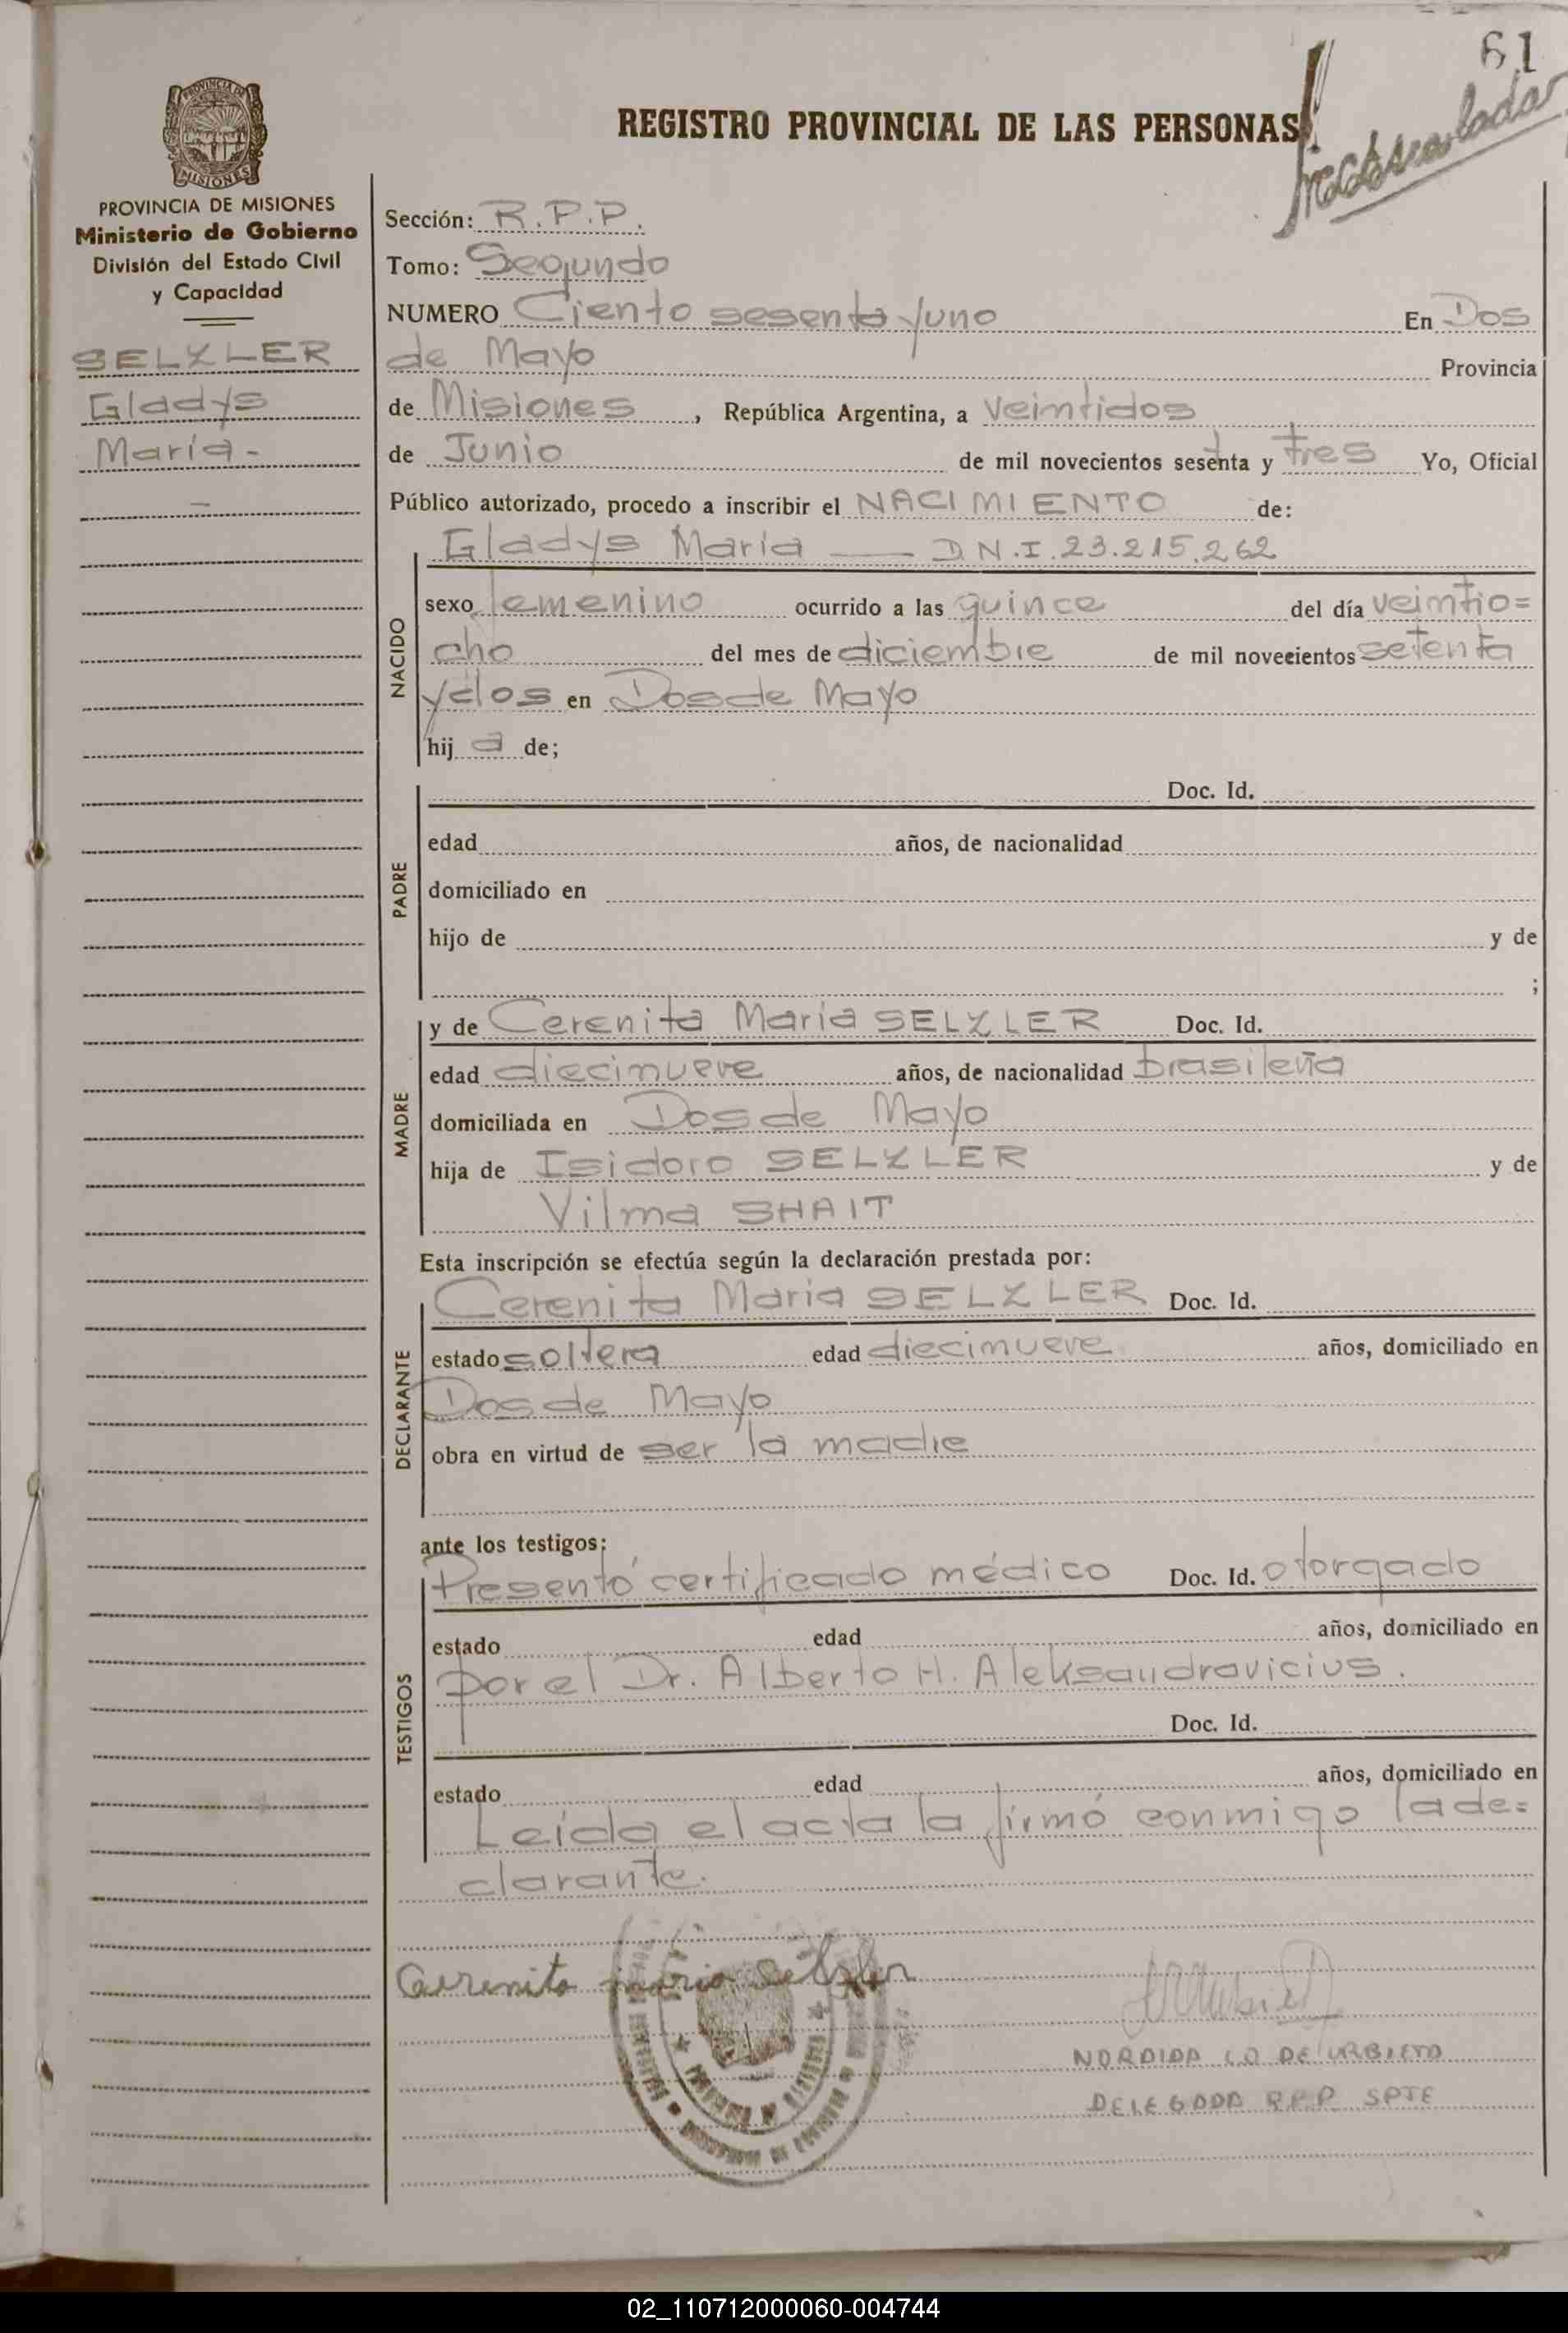 61
REGISTRO PROVINCIAL DE LAS PERSONAS
PROVINCIA DE MISIONES
Ministerio de Gobierno
División del Estado Civil
y Capacidad
SELZLER
Gladys
María-
Sección: R.P.P.
Tomo: Segundo
NUMERO Ciento sesenta y uno En Dos
de Mayo Provincia
de Misiones, República Argentina, a veintidos
de Junio de mil novecientos sesenta y tres Yo, Oficial
Público autorizado, procedo a inscribir el NACIMIENTO de:
NACIDO
Gladys María — D.N.I. 23.215.262
sexo femenino ocurrido a las quince del día veintio=
cho del mes de diciembre de mil novecientos setenta
y dos en Dos de Mayo
hij a de;
PADRE
Doc. Id.
edad años, de nacionalidad
domiciliado en
hijo de y de
;
MADRE
y de Cerenita María SELZLER Doc. Id.
edad diecinueve años, de nacionalidad brasileña
domiciliada en Dos de Mayo
hija de Isidoro SELZLER y de
Vilma SHAIT
Esta inscripción se efectúa según la declaración prestada por:
DECLARANTE
Cerenita María SELZLER Doc. Id.
estado soltera edad diecinueve años, domiciliado en
Dos de Mayo
obra en virtud de ser la madre
ante los testigos:
TESTIGOS
Presentó certificado médico Doc. Id. otorgado
estado edad años, domiciliado en
por el Dr. Alberto H. Aleksandravicius.
Doc. Id.
estado edad años, domiciliado en
Leída el acta la firmó conmigo la de=
clarante.
Cerenita maria Selzler
DE URBIETA
DELEGADA R.P.P. SPTE
02_110712000060-004744